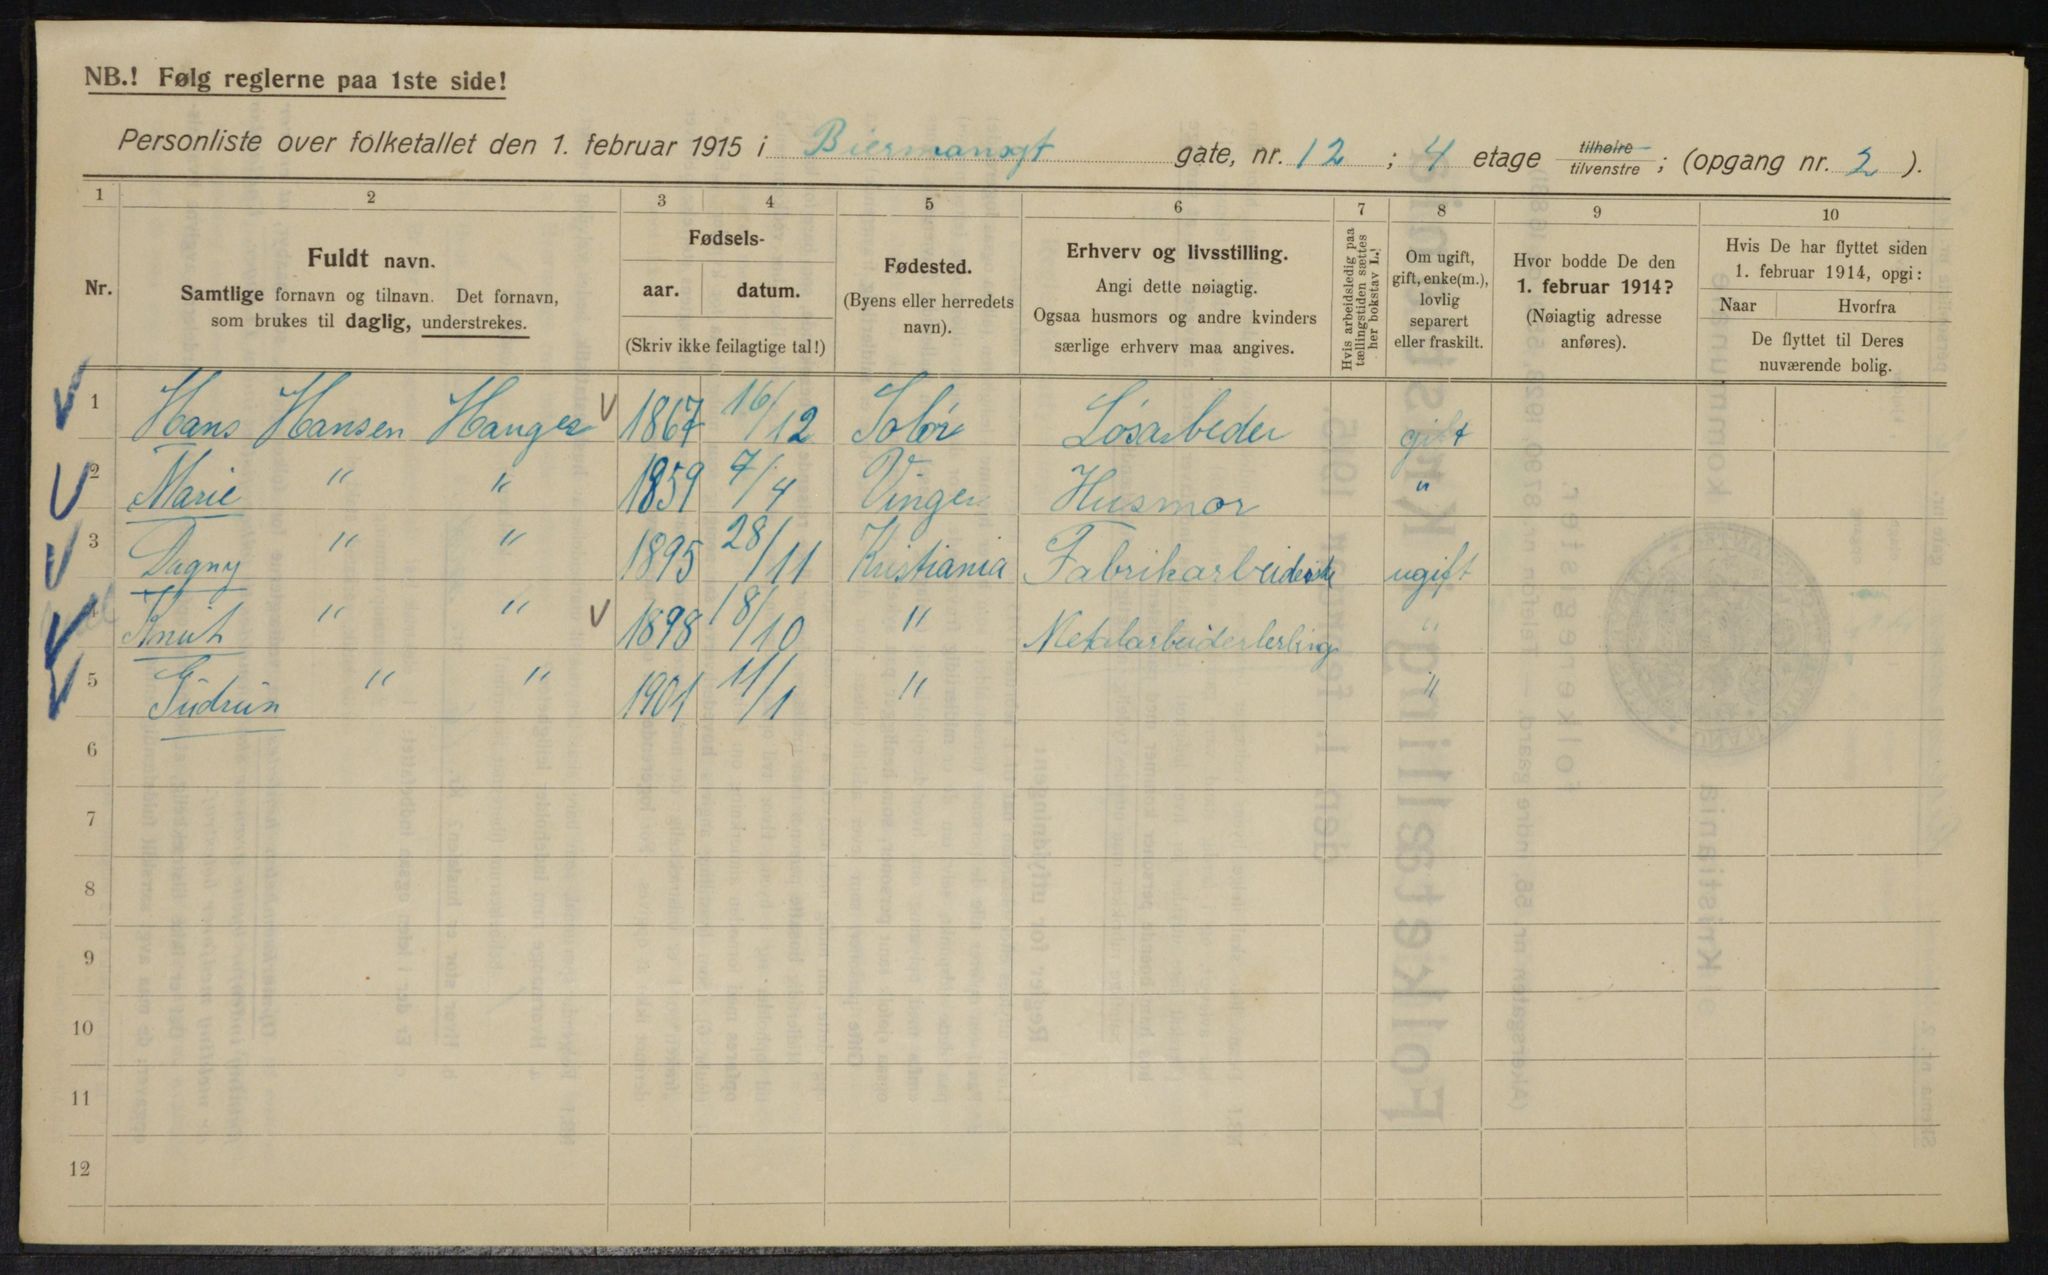 NB.! Følg reglerne paa 1ste side!
Personliste over folketallet den 1. februar 1915 i Biermansgt gate, nr. 12 ; 4 etage tilhøire tilvenstre ; (opgang nr. 2 ).
1 2 3 4 5 6 7 8 9 10
Nr.
Fuldt navn.
Samtlige fornavn og tilnavn. Det fornavn,
som brukes til daglig, understrekes.
Fødsels-
aar. datum.
(Skriv ikke feilagtige tal!)
Fødested.
(Byens eller herredets
navn).
Erhverv og livsstilling.
Angi dette nøiagtig.
Ogsaa husmors og andre kvinders
særlige erhverv maa angives.
Hvis arbeidsledig paa
tællingstiden sættes
her bokstav L.!
Om ugift,
gift, enke(m.),
lovlig
separert
eller fraskilt.
Hvor bodde De den
1. februar 1914?
(Nøiagtig adresse
anføres).
Hvis De har flyttet siden
1. februar 1914, opgi:
Naar Hvorfra
De flyttet til Deres
nuværende bolig.
1 Hans Hansen Hanges 1867 16/12 Solør Løsarbeder gift
2 Marie " " 1859 7/4 Vinger Husmor "
3 Dagny " " 1895 28/11 Kristiania Fabrikarbeiderske ugift
4 Knut " " 1898 18/10 " Metalarbeiderlerling "
5 Gudrun " " 1901 11/1 " "
6
7
8
9
10
11
12